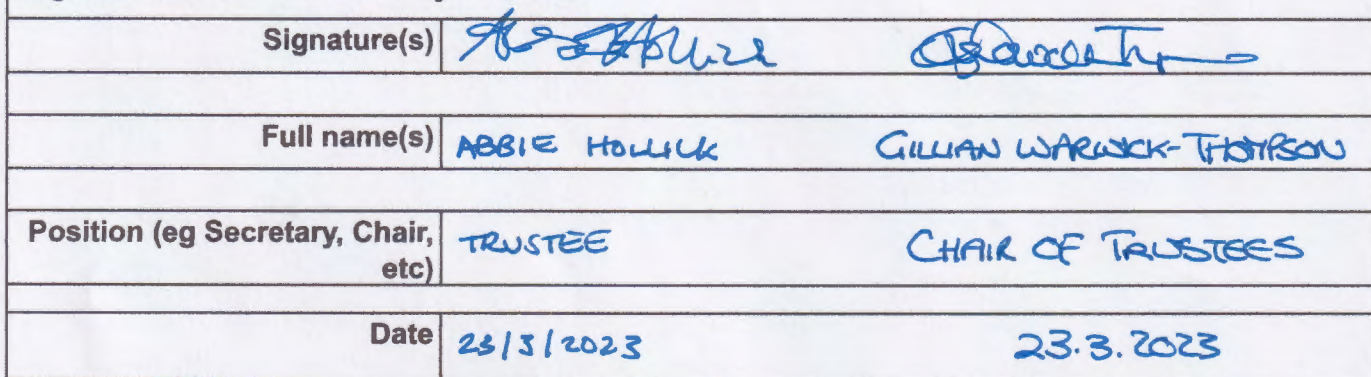 Signature(s)
Full name(s) ABBIE HOLLICK GILLIAN WARWICK-THOMPSON
Position (eg Secretary, Chair, TRUSTEE CHAIR OF TRUSTEES
etc)
Date 23/3/2023 23.3.2023